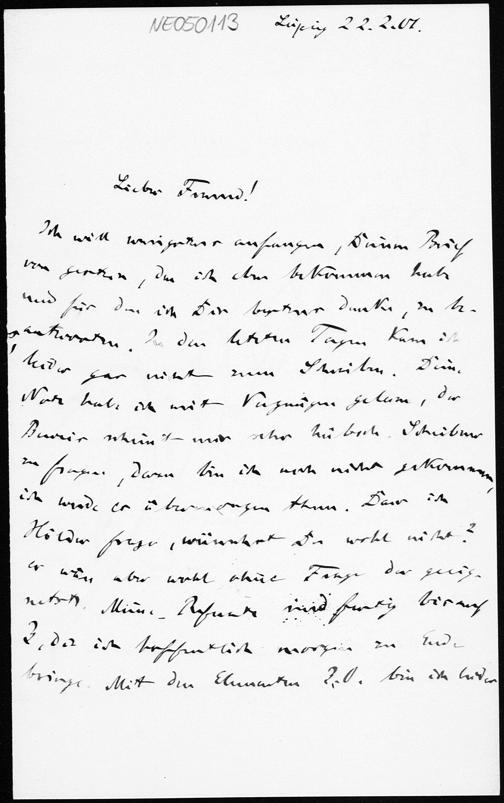 NE050113
Leipzig 22.2.07.
Lieber Freund!
Ich will wenigstens anfangen, Deinen Brief
von gestern, den ich eben bekommen habe
und für den ich Dir bestens danke, zu be-
antworten. In den letzten Tagen kam ich
leider gar nicht zum Schreiben. Deine
Note habe ich mit Vergnügen gelesen, der
Beweis scheint mir sehr hübsch. Scheibner
zu fragen, dazu bin ich noch nicht gekommen,
ich werde es übermorgen thun. Dass ich
Hölder frage, wünschst Du wohl nicht?
er wäre aber wohl ohne Frage der geeig-
netste. Meine Referate sind fertig bis auf
2, die ich hoffentlich morgen zu Ende
bringe. Mit den Elementen bin ich leider